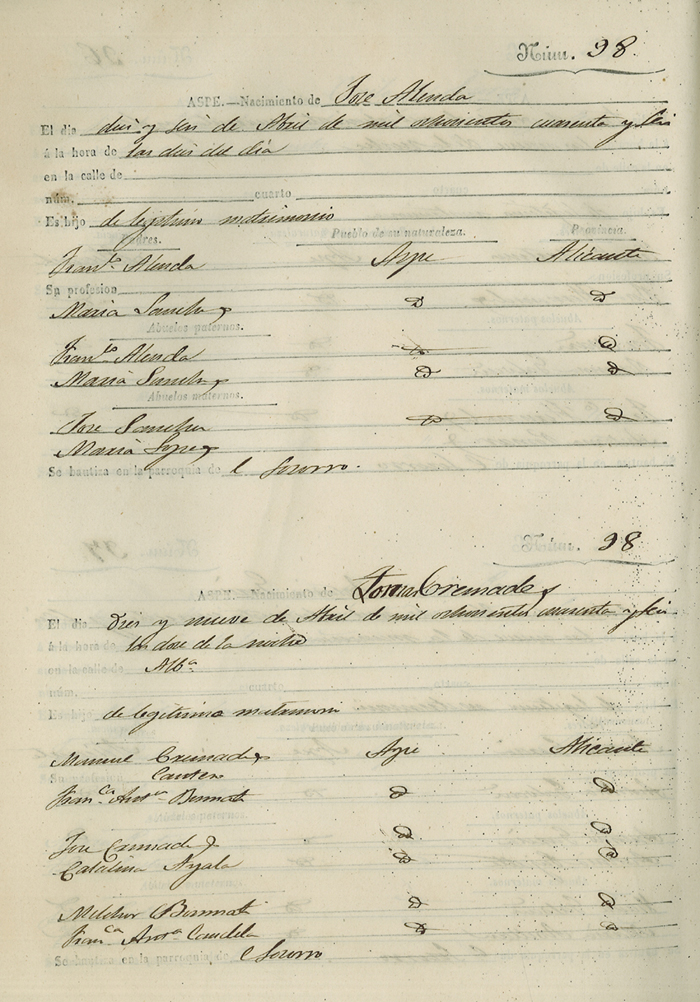 Núm. 98
ASPE.—Nacimiento de Jose Alenda
El dia diez y seis de Abril de mil ochocientos cuarenta y seis
á la hora de las diez del dia
en la calle de
núm. cuarto
Es hijo de legitimo matrimonio
Padres. Pueblo de su naturaleza. Provincia.
Fran.co Alenda Aspe Alicante
Su profesion
Maria Sanchez D D
Abuelos paternos.
Fran.co Alenda D D
Maria Sanchez D D
Abuelos maternos.
Jose Sanchez D D
Maria Lopez
Se bautiza en la parroquia de el Socorro.
Núm. 98
ASPE.—Nacimiento de Tomas Cremades
El dia diez y nueve de Abril de mil ochocientos cuarenta y seis
á la hora de las doce de la noche
en la calle de
núm. cuarto
Es hijo de legitimo matrimonio
Manuel Cremades Aspe Alicante
Su profesion Cantero
Fran.ca Ant.a Bernat D D
Jose Cremades D D
Catalina Ayala D D
Melchor Bernat D D
Fran.ca Ant.a Candela D D
Se bautiza en la parroquia de el Socorro